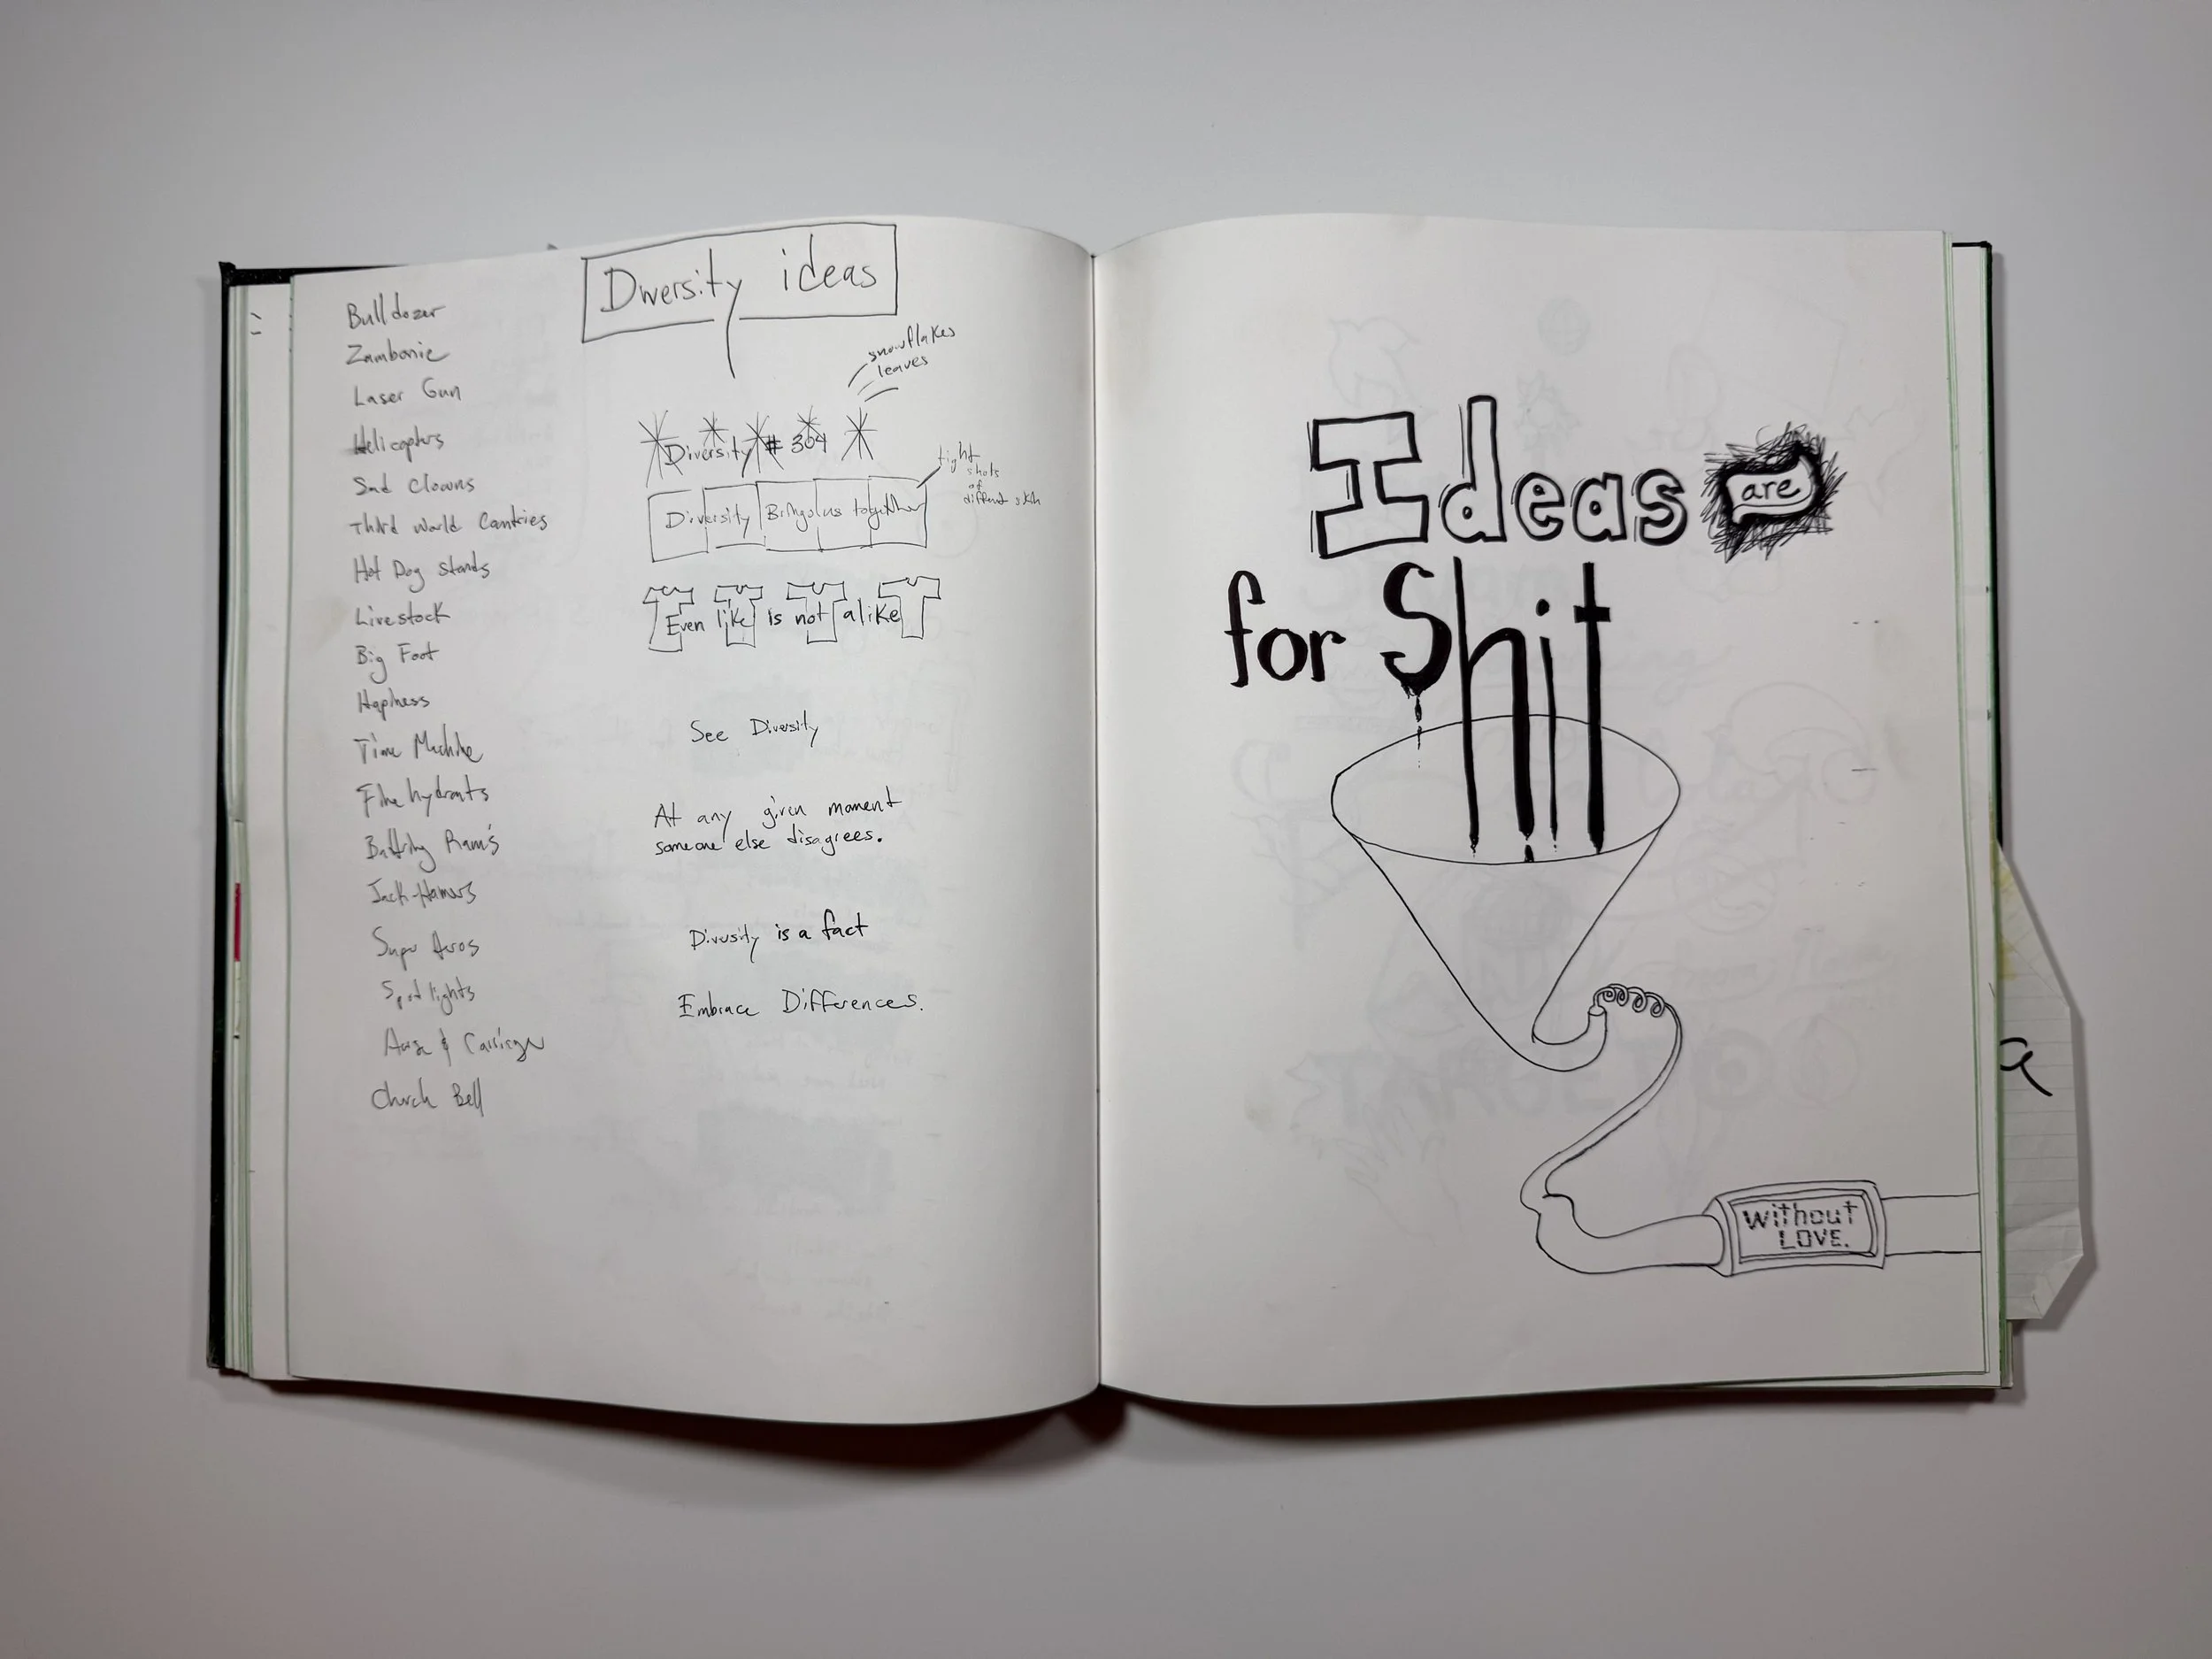 Bulldozer
Zambonie
Laser Gun
Helicopters
Sad Clowns
Third World Contries
Hot Dog Stands
Livestock
Big Foot
Hapiness
Time Machine
Fire hydrants
Battring Ram's
Jack-Hamers
Super Heros
Spot lights
& Carriage
Church Bell
Diversity ideas
snowflakes
leaves
Diversity # 304
Diversity Brings us together
tight
shots
of
different skin
Even like is not alike
See Diversity
At any given moment
someone else disagrees.
Diversity is a fact
Embrace Differences.
Ideas are
for Shit
without
LOVE.
a